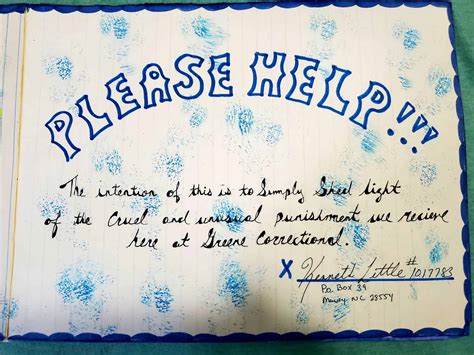 PLEASE HELP!!!
The intention of this is to Simply Shed light
of the Cruel and unusual punishment we recieve
here at Greene Correctional.
X Kenneth Little #1017783
P.o. Box 39
Maury, NC 28554